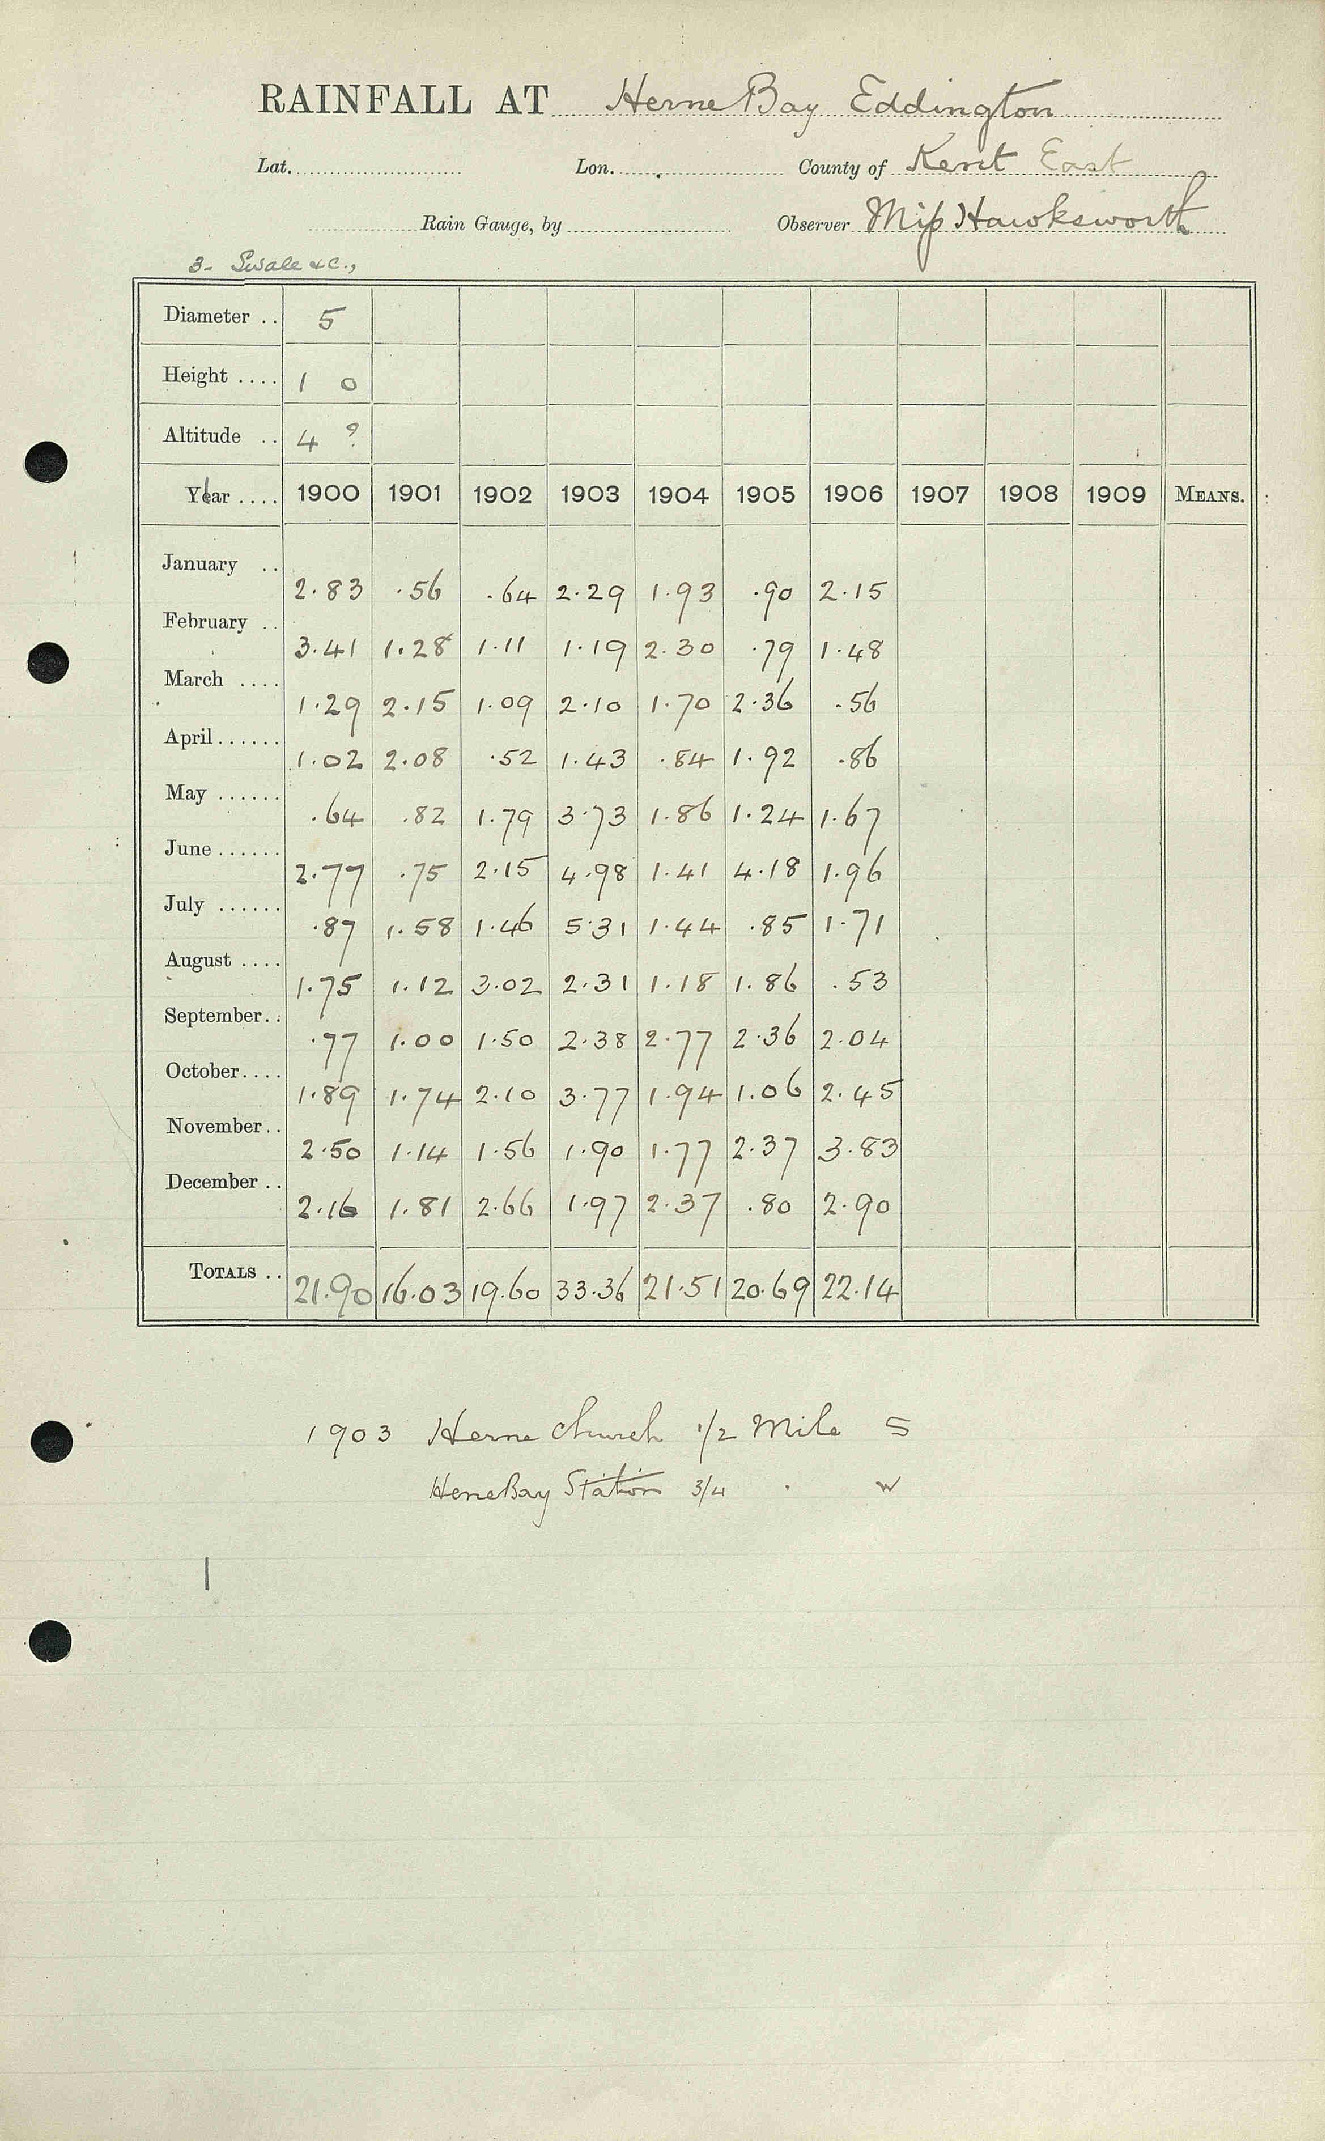 RAINFALL AT Herne Bay Eddington
Lat. Lon. County of Kent East
Rain Gauge, by Observer Miss Hawksworth
3. Swale &c.,
Diameter .. 5
Height .... 1 0
Altitude .. 4 ?
Year .... 1900 1901 1902 1903 1904 1905 1906 1907 1908 1909 MEANS.
January .. 2.83 .56 .64 2.29 1.93 .90 2.15
February .. 3.41 1.28 1.11 1.19 2.30 .79 1.48
March .... 1.29 2.15 1.09 2.10 1.70 2.36 .56
April...... 1.02 2.08 .52 1.43 .84 1.92 .86
May ...... .64 .82 1.79 3.73 1.86 1.24 1.67
June ...... 2.77 .75 2.15 4.98 1.41 4.18 1.96
July ...... .87 1.58 1.46 5.31 1.44 .85 1.71
August .... 1.75 1.12 3.02 2.31 1.18 1.86 .53
September.. .77 1.00 1.50 2.38 2.77 2.36 2.04
October.... 1.89 1.74 2.10 3.77 1.94 1.06 2.45
November.. 2.50 1.14 1.56 1.90 1.77 2.37 3.83
December .. 2.16 1.81 2.66 1.97 2.37 .80 2.90
TOTALS .. 21.90 16.03 19.60 33.36 21.51 20.69 22.14
1903 Herne Church 1/2 Mile S
Herne Bay Station 3/4 . W